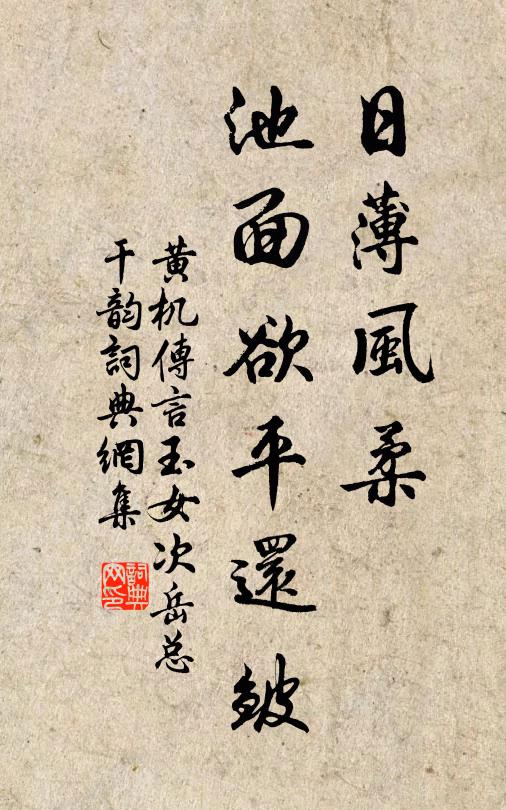 日薄風柔
池面欲平還皴
黄机傳言玉女次岳总
干韵詞典網集
詞典